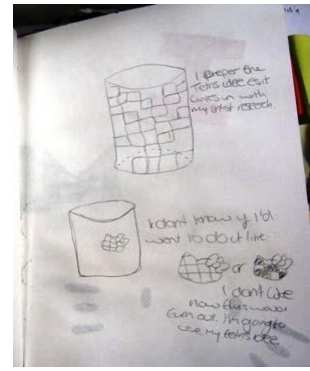 I prefer the
Tetris idea as it
links in with
my artist research.
I dont know if I'd
want to do it like
or
I dont like
how this would
turn out. I'm going to
use my tetris idea